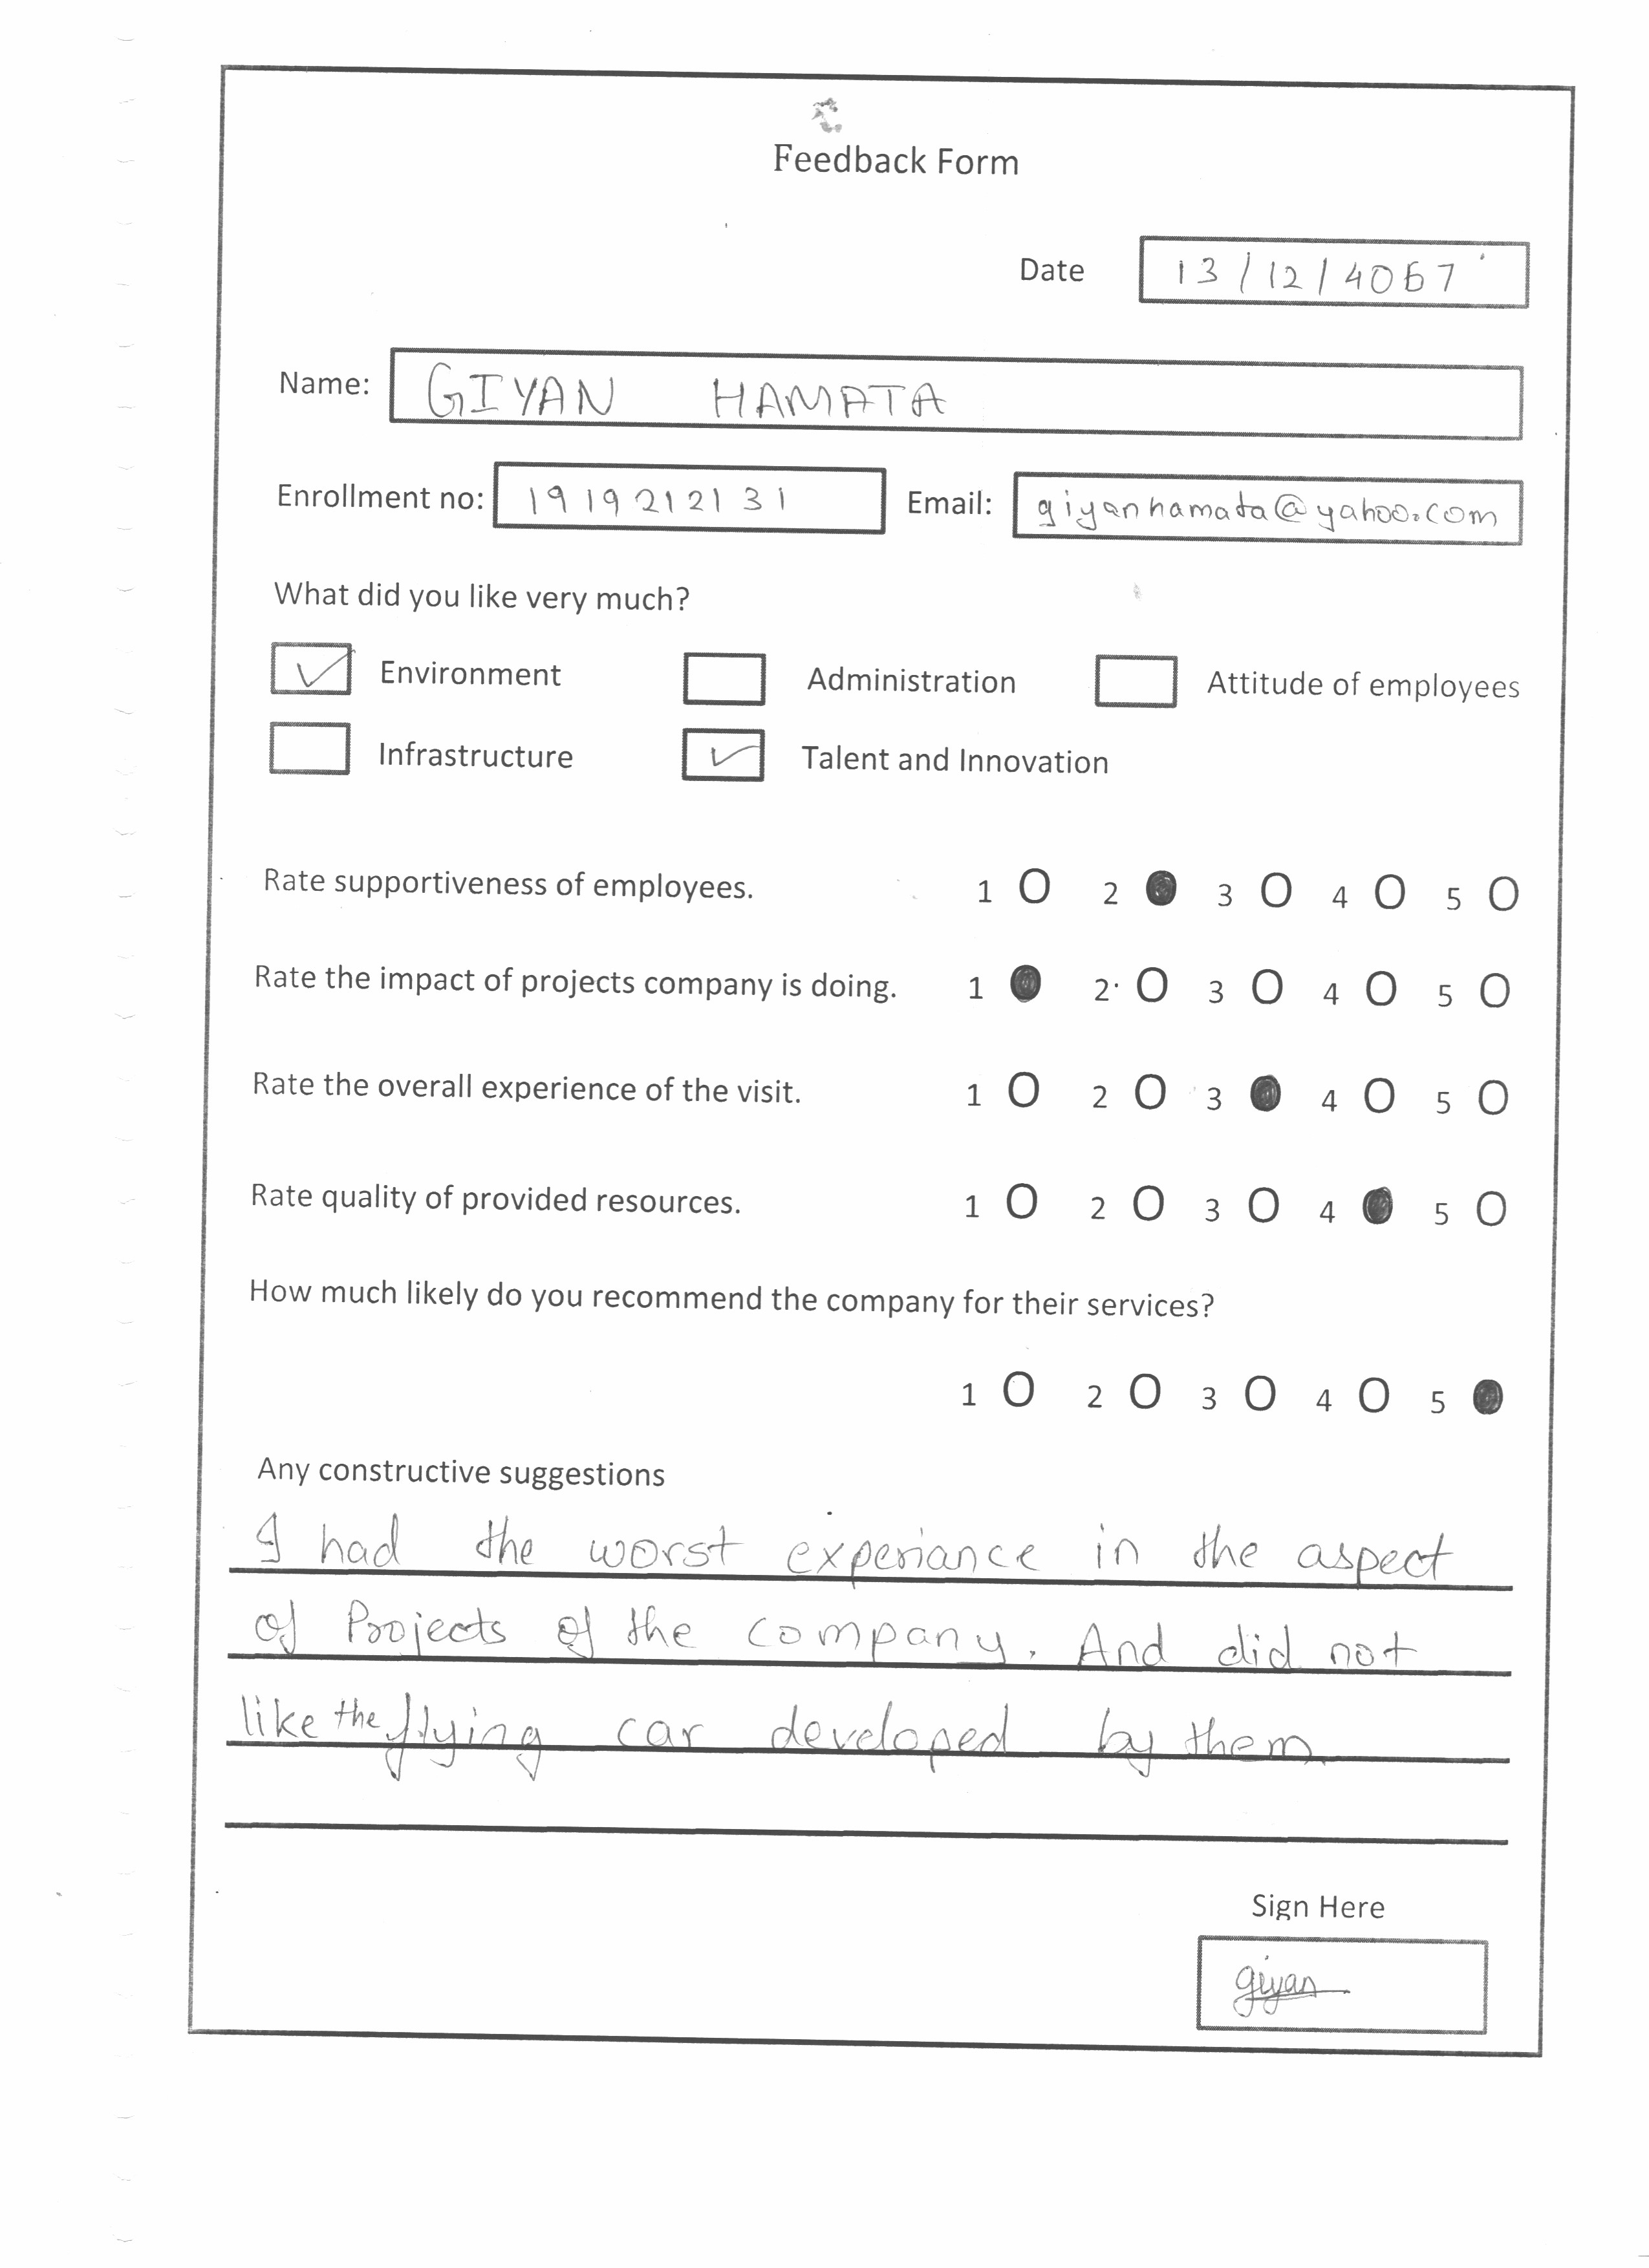 Feedback Form
Date 13/12/4067
Name: GIYAN HAMATA
Enrollment no: 1919212131 Email: giyanhamata@yahoo.com
What did you like very much?
Environment Administration Attitude of employees
Infrastructure Talent and Innovation
Rate supportiveness of employees. 1 2 3 4 5
Rate the impact of projects company is doing. 1 2 3 4 5
Rate the overall experience of the visit. 1 2 3 4 5
Rate quality of provided resources. 1 2 3 4 5
How much likely do you recommend the company for their services?
1 2 3 4 5
Any constructive suggestions
I had the worst experiance in the aspect
of Projects of the company. And did not
like the flying car developed by them
Sign Here
giyan